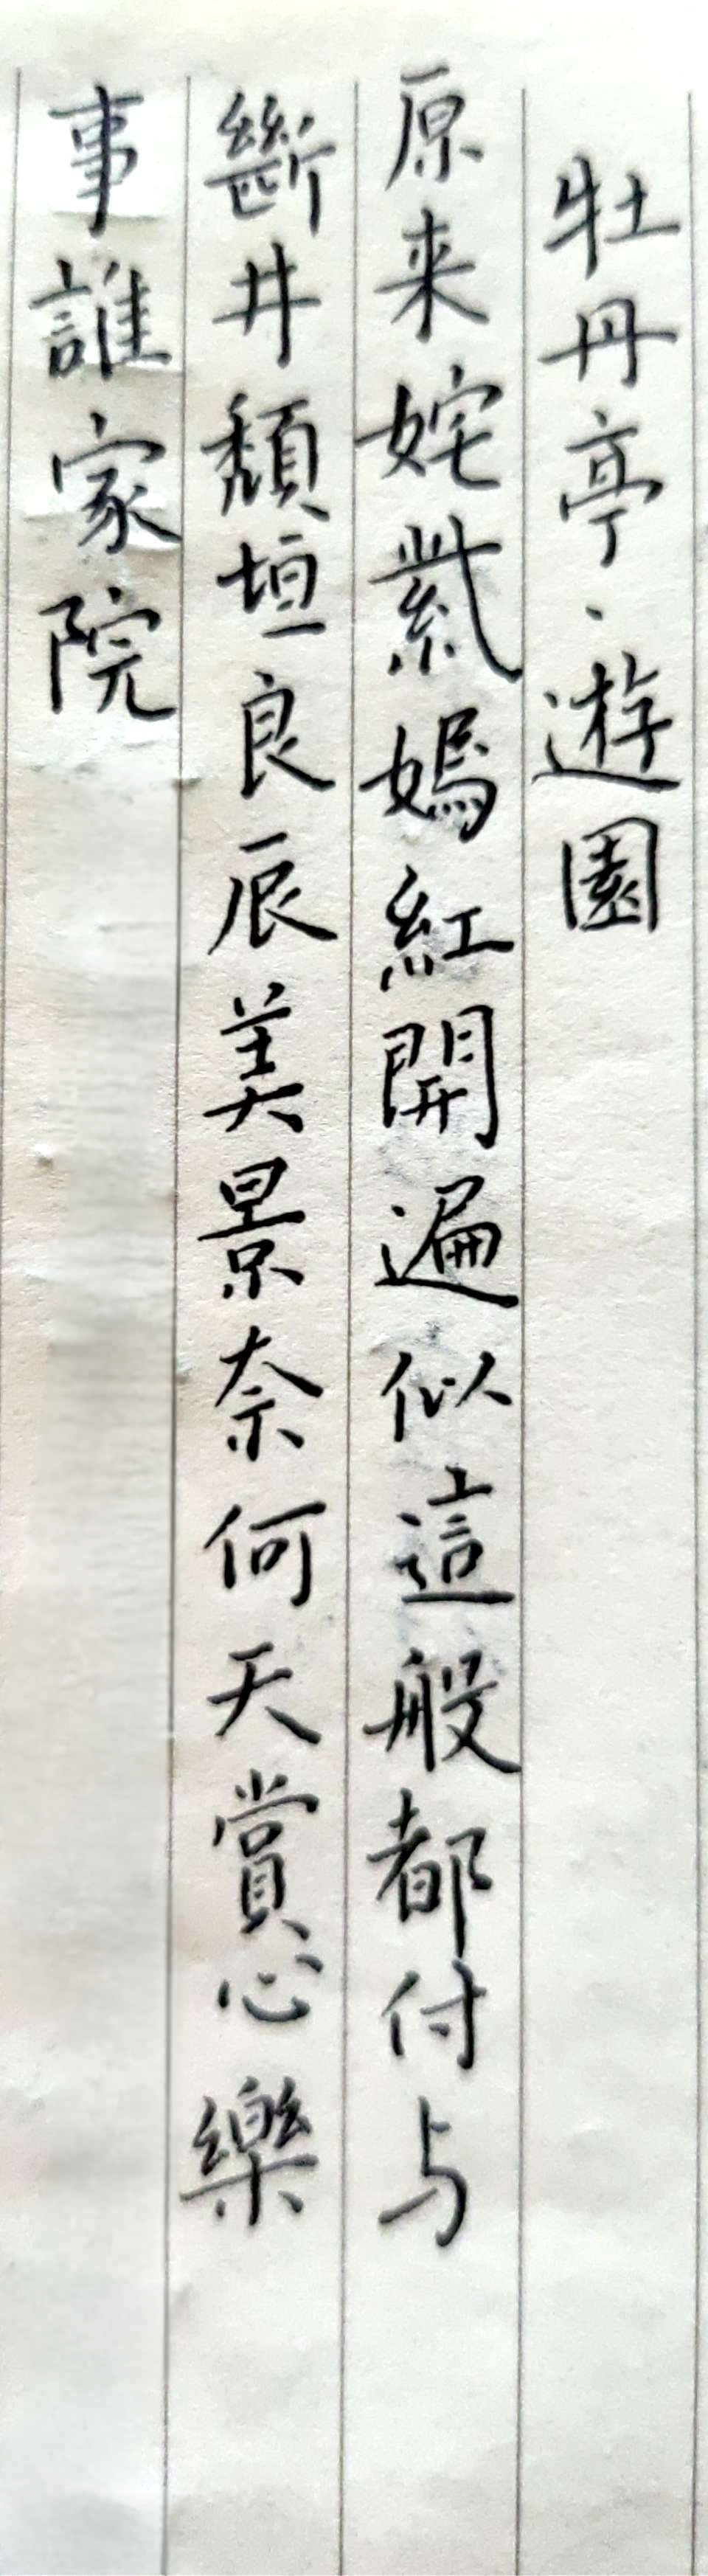 牡丹亭·遊園
原来姹紫嫣紅開遍似這般都付与
斷井頹垣良辰美景奈何天賞心樂
事誰家院